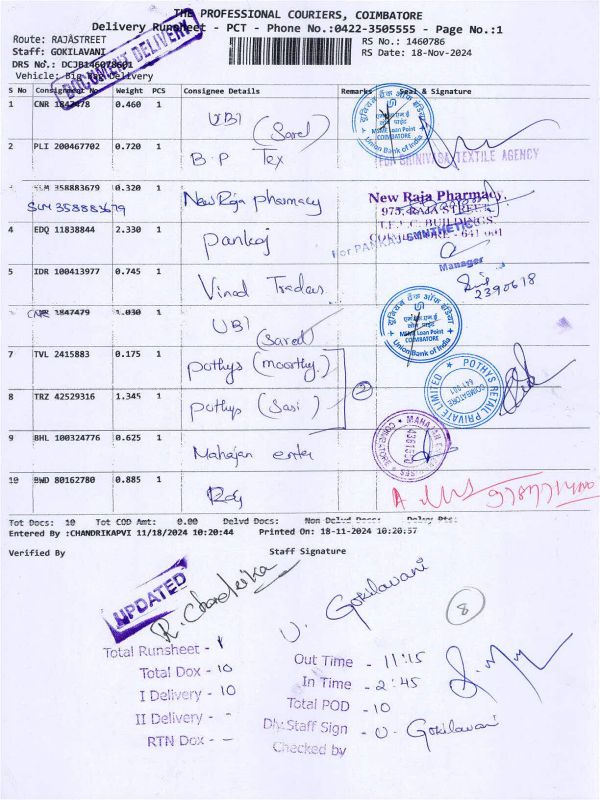 THE PROFESSIONAL COURIERS, COIMBATORE
Delivery Runsheet - PCT - Phone No.:0422-3505555 - Page No.:1
DOCUMENT DELIVERY
Route: RAJASTREET
RS No.: 1460786
Staff: GOKILAVANI
RS Date: 18-Nov-2024
DRS No.: DCJB146078601
Vehicle: Big Bag Delivery
S No Consignment No Weight PCS Consignee Details Remarks Seal & Signature
1 CNR 1847478 0.460 1 UBI (Sarel)
यूनियन बैंक ऑफ इंडिया
MSME Loan Point
COIMBATORE
Union Bank of India
2 PLI 200467702 0.720 1 B.P Tex
FOR SRINIVASA TEXTILE AGENCY
SLM 358883679 0.320 1 New Raja pharmacy
SLM 358883679
New Raja Pharmacy,
975, RAJA STREET,
BUILDINGS,
COIMBATORE - 641 001
4 EDQ 11838844 2.330 1 Pankaj
For PANKAJ SYNTHETICS
Manager
5 IDR 100413977 0.745 1 Vinod Traders
2390618
CNR 1847479 1.030 1 UBI (Sarel)
यूनियन बैंक ऑफ इंडिया
MSME Loan Point
COIMBATORE
Union Bank of India
7 TVL 2415883 0.175 1 Pothys (moorthy.)
8 TRZ 42529316 1.345 1 Pothys (Sasi)
2
POTHYS RETAIL PRIVATE LIMITED
COIMBATORE
641 001
9 BHL 100324776 0.625 1 Mahajan enter
10 BWD 80162780 0.885 1
Tot Docs: 10 Tot COD Amt: 0.00 Delvd Docs: Non Delvd Docs: Delvy Pts:
Entered By :CHANDRIKAPVI 11/18/2024 10:20:44 Printed On: 18-11-2024 10:20:57
Verified By Staff Signature
UPDATED
R. Chandrika
U. Gokilavani
8
Total Runsheet - 1
Total Dox - 10
I Delivery - 10
II Delivery - -
RTN Dox - -
Out Time - 11:15
In Time - 2:45
Total POD - 10
Dly.Staff Sign - U. Gokilavani
Checked by